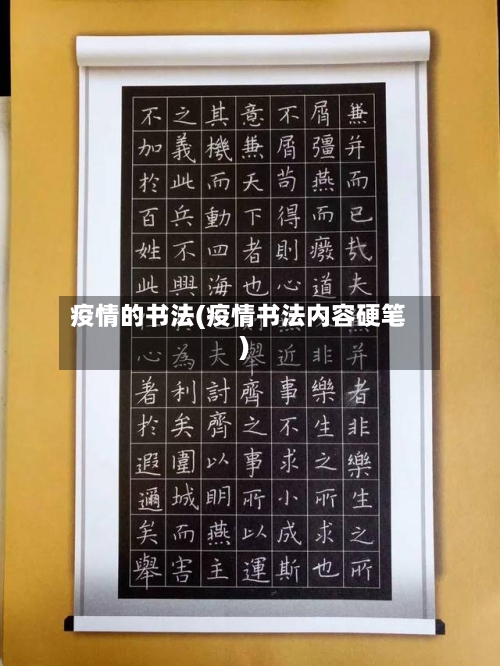 兼并而已哉夫并者非樂生之所
屑彊燕而廢道非樂生之所求也
不屑苟得則心近事不求小成斯
意兼天下者也舉齊之事所以運
其機而動四海夫討齊以明燕主
之義此兵不興為利矣圍城而害
不加於百姓此心著於遐邇矣舉
疫情的书法(疫情书法内容硬笔
)